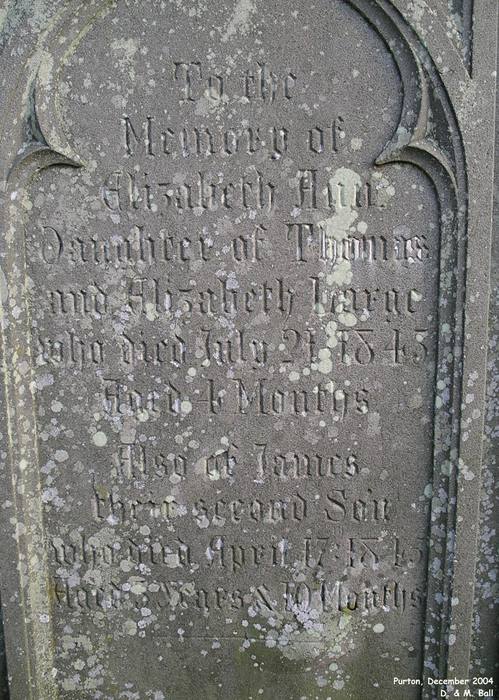 To the
Memory of
Elizabeth Ann.
Daughter of Thomas
and Elizabeth Large
who died July 21 1845
Aged 4 Months
Also of James
their second Son
who died April 17: 1845
Aged 3 Years & 10 Months
Purton, December 2004
D. & M. Ball